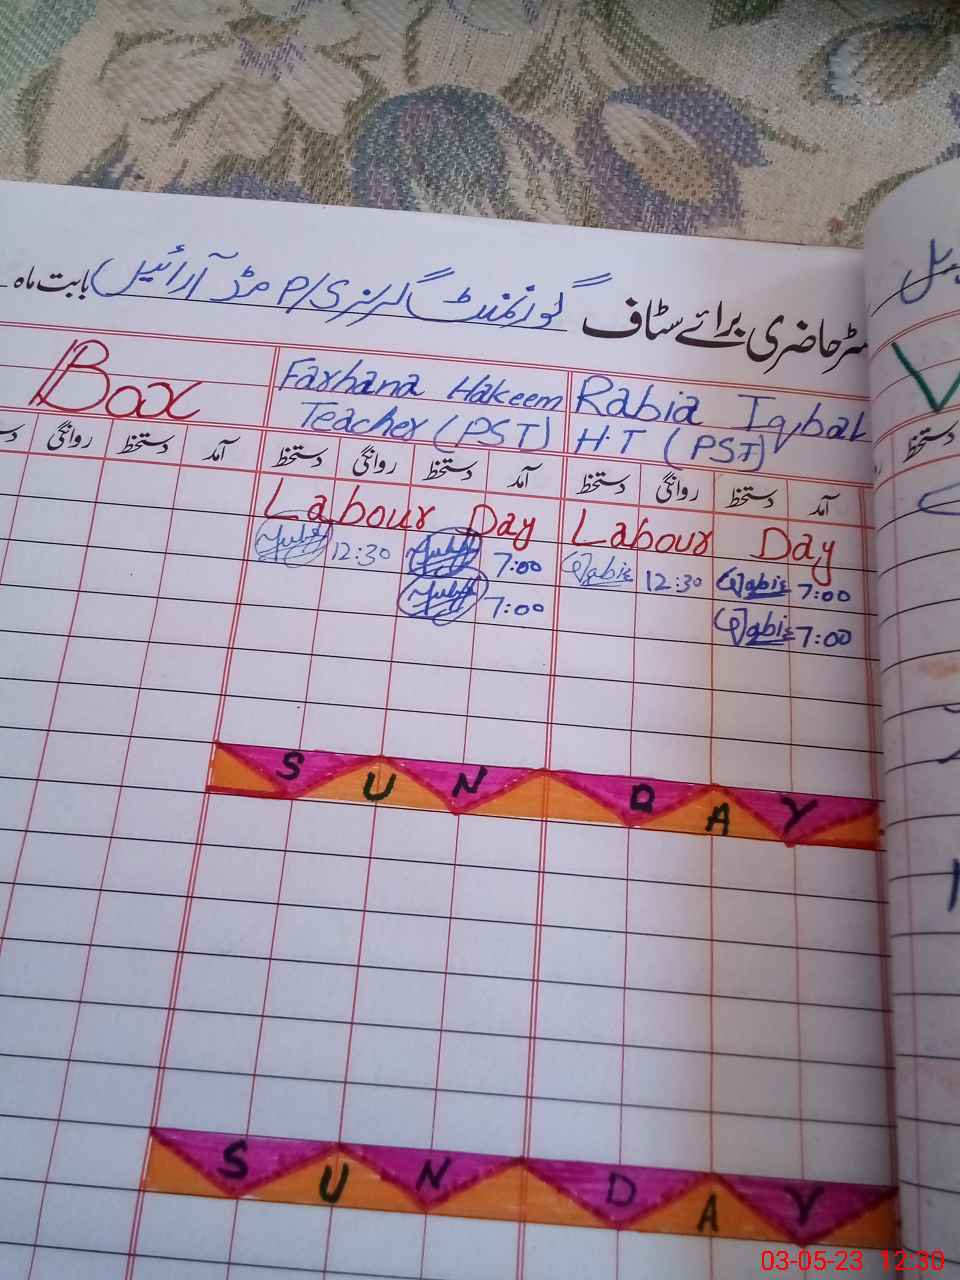 رجسٹر حاضری برائے سٹاف گورنمنٹ گرلز P/S مڈ آرائیں بابت ماہ
Rabia Iqbal
H.T (PST)
Farhana Hakeem
Teacher (PST)
Box
آمد دستخط روانگی دستخط آمد دستخط روانگی دستخط آمد دستخط روانگی
دستخط
Labour Day Labour Day
12:30 7:00 Rabia 12:30 Rabia 7:00
7:00 Rabia 7:00
SUNDAY
SUNDAY
03-05-23 12:30